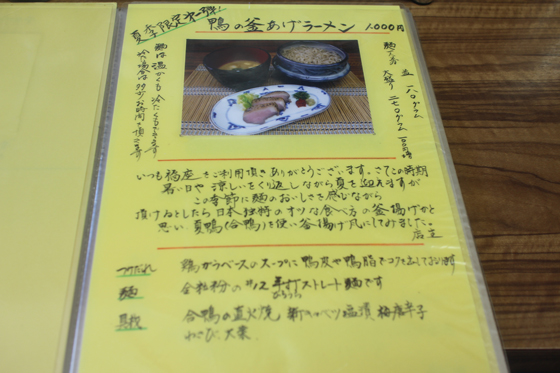 夏季限定
鴨の釜あげラーメン 1,000円
麺は温かくも冷たくもできます
麺 並 一八〇グラム
大盛り 二七〇グラム 一〇〇円増
いつも福座をご利用頂きありがとうございます。さてこの時期
暑い日や涼しいをくり返しながら夏を迎えますが
この季節に麺のおいしさを感じながら
頂けるとしたら日本独特のオツな食べ方の釜揚げかと
思い夏鴨(合鴨)を使い釜揚げ風にしてみました。
店主
つけだれ 鶏がらベースのスープに鴨皮や鴨脂でコクを出しております
麺 全粒粉の#12 平打ストレート麺です
具材 合鴨の直火焼 新キャベツ塩漬 梅唐辛子
わさび、大葉